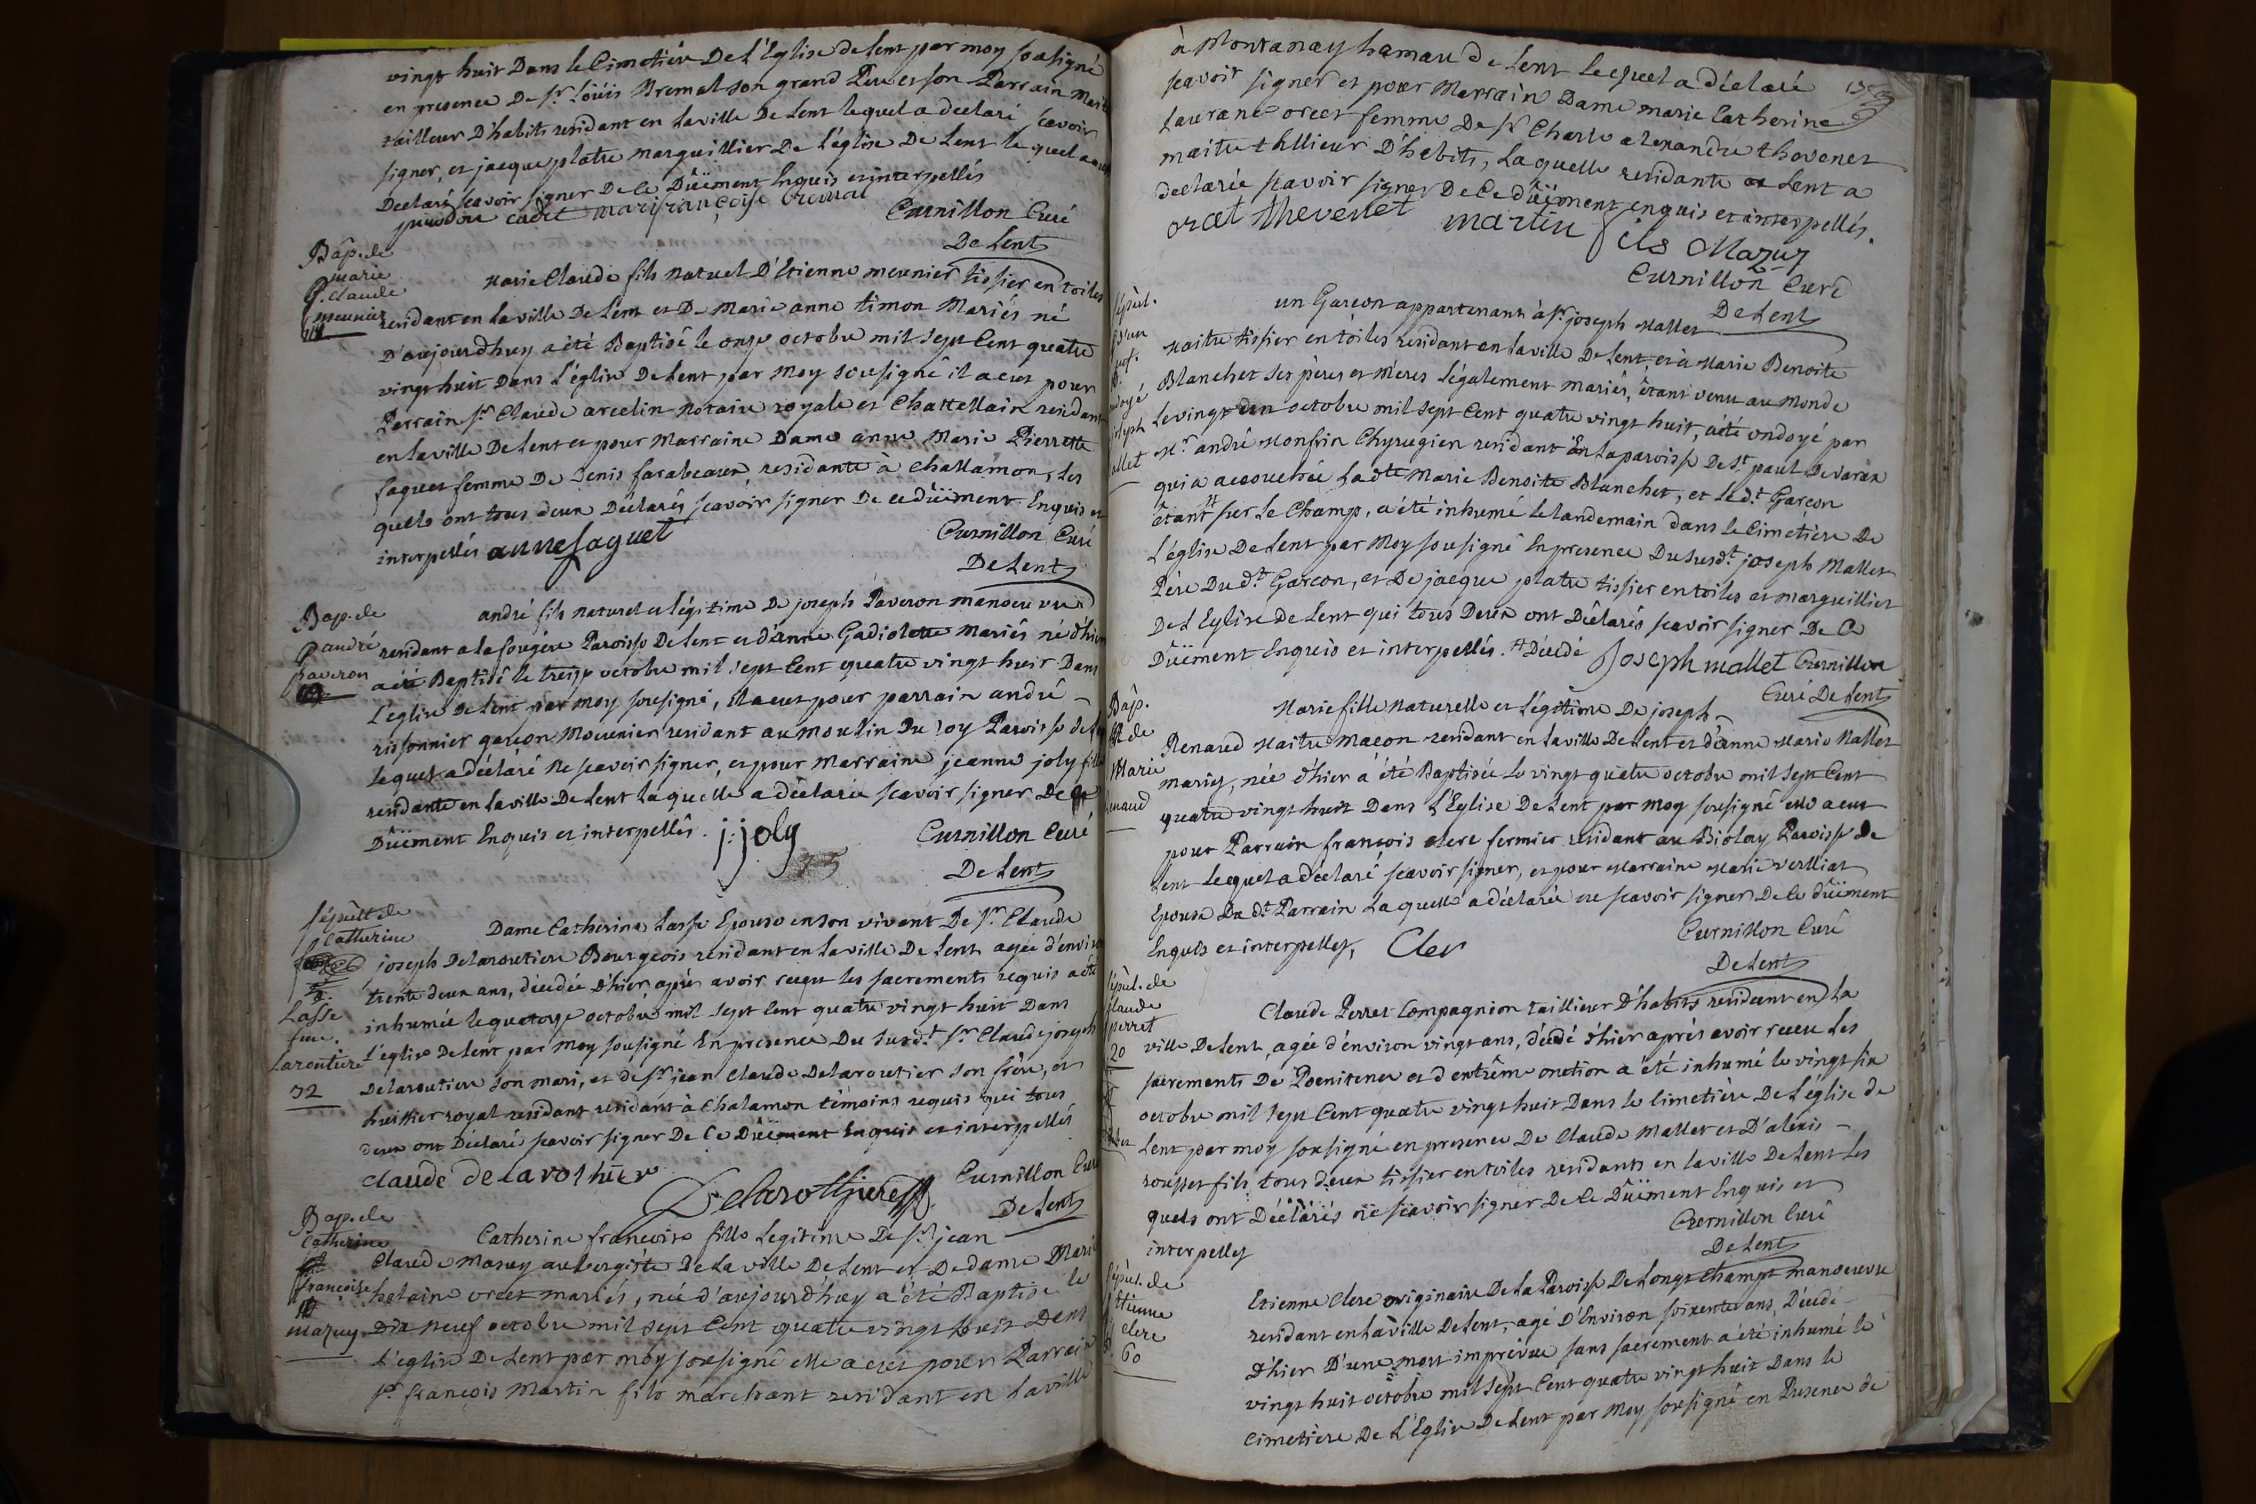 vingt huit Dans le Cimetiére De L'Eglise de Lent par moy sousigné
en presence De Sr. Loüis Bremal son grand Pere et son Parrain
tailleur D'habits residant en la ville De Lent lequel a declaré scavoir
signer, et jacque platre marguillier De L'église De Lent le quel a aussy
Declaré scavoir signer De ce Düëment Enquis et interpellés
cadet marifrançoise bremal Curnillon Curé
De Lent
Bap. de
marie
claude
meunier
Marie Claude fils naturel D'Etienne meunier tissier en toiles
residant en la ville De Lent et De Marie anne timon Mariés né
D'aujourdhuy a été Baptisé le onze octobre mil sept Cent quatre
vingt huit Dans L'église De Lent par moy sousigné il a eut pour
Parrain Sr. Claude arcelin Notaire royale et Chattellain residant
en la ville De Lent et pour Marraine Dame anne Marie Pierrette
faguet femme De Denis farabeaux residante à Challamon, les
quels ont tous deux Déclarés scavoir signer De ce düëment Enquis et
interpellés anne faguet Curnillon Curé
De Lent
Bap. de
andré
paveron
andré fils naturel et légitime De joseph Paveron manoeuvre
residant a la fougére Paroisse De Lent et d'anne Gadiolette Mariés né d'hier
a été Baptisé le treize octobre mil sept Cent quatre vingt huit Dans
L'église De Lent par moy sousigné, il a eut pour parrain andré
rissonnier garçon Meunier residant au moulin Du roy Paroisse de
lequel a déclaré ne scavoir signer, et pour Marraine jeanne joly fille
residante en la ville De Lent laquelle a déclarée scavoir signer De ce
Düëment Enquis et interpellés. j: joly Curnillon Curé
De Lent
sépult de
Catherine
Lasse
fme.
Laroutiere
32
Dame Catherine Lasse Epouse en son vivant De Sr. Claude
joseph Delaroutiere Bourgeois residant en la ville De Lent agée d'environ
trente deux ans, décedée d'hier, aprés avoir reçu les sacrements requis a été
inhumée le quatorze octobre mil sept cent quatre vingt huit Dans
L'église De Lent par moy sousigné En presence Du susdt. Sr. Claude joseph
Delaroutiere son mari, et de Sr. jean Claude Delaroutier son frère, et
huissier royal residant residant à Chalamon témoins requis qui tous
deux ont Déclaré scavoir signer De Ce Düëment Enquis et interpellés
claude de la rothier Delarothiere Curnillon Curé
De Lent
Bap. de
Catherine
françoise
mazuy
Catherine françoise fille Legitime De Sr. jean
Claude Mazuy aubergiste De la ville De Lent et De dame Marie
helaine orcet mariés, née d'aujourd'huy a été Baptisé le
Dix neuf octobre mil sept Cent quatre vingt huit Dans
L'église De Lent par moy sousigné elle a eut pour Parrain
Sr. françois Martin fils marchant residant en la ville
à Montanay hamau de Lent lequel a déclaré
scavoir signer et pour Marrain Dame marie Catherine
Laurance orcet femme De Sr. Charle alexandre thevenet
maitre tallieur D'habits, laquelle residante a Lent a
declarée scavoir signer De Ce düëment enquis et interpellés.
orcet thevenet martin fils Mazuy
Curnillon Curé
De Lent
sépul.
d'un
joseph
mallet
un Garcon appartenant à Sr. joseph Mallet
Maitre tissier en toiles residant en la ville De Lent, et à Marie Benoite
Blanchet ses pères et mères légalement mariés, étant venu au Monde
le vingt un octobre mil sept Cent quatre vingt huit, a été ondoyé par
Mr. andré Monfrin Chyrugien residant en la paroisse De St. paul De varax
qui a accouchée la dte Marie Benoite Blanchet, et le dt. Garcon
étant # sur le Champ, a été inhumé le landemain dans le Cimetiére De
L'église De Lent par Moy sousigné En presence Du susdt. joseph Mallet
Pére Du dt. Garcon, et De jacque platre tissier en toiles et marguillier
De L'Eglise de Lent qui tous Deux ont Déclarés scavoir signer De Ce
Düëment Enquis et interpellés. # Décédé Joseph mallet Curnillon
Curé De Lent
Bap.
de
Marie
renaud
Marie fille Naturelle et Légitime De joseph
Renaud Maitre Macon residant en la ville De Lent et d'anne Marie Mallet
mariez, née d'hier a été Baptisée le vingt quatre octobre mil sept Cent
quatre vingt huit Dans L'Eglise De Lent par moy sousigné elle a eut
pour Parrain francois clerc fermier residant au Biolay Paroisse De
Lent lequel a déclaré scavoir signer, et pour Marraine Marie verlliat
Epouse Du dt. Parrain laquelle a déclarée ne scavoir signer De Ce düëment
Enquis et interpellez, Cler Curnillon Curé
De Lent
sépul. de
claude
perret
20
Claude Perret Compagnion taillieur D'habits residant en la
ville De Lent, agée d'énviron vingt ans, décedé d'hier aprés avoir reçeu les
sacrements De Poenitence et d'extrême onction a été inhumé le vingt six
octobre mil sept Cent quatre vingt huit Dans le Cimetiére De L'église de
Lent par moy sousigné en presence De Claude Mallet et D'alexis
rousset fils tous deux tissier en toiles residants en la ville De Lent les
quels ont Déclarés ne scavoir signer De Ce Düëment Enquis et
interpellez Curnillon Curé
De Lent
sépul. de
Etienne
clerc
60
Etienne Clerc originaire De La Paroisse De Longt Champt manoeuvre
residant en la ville De Lent, agé D'Environ soixente ans, Décédé
D'hier D'une mort imprévue sans sacrement a été inhumé le
vingt huit octobre mil sept Cent quatre vingt huit Dans le
Cimetiére De L'Eglise De Lent par Moy sousigné en Presence de